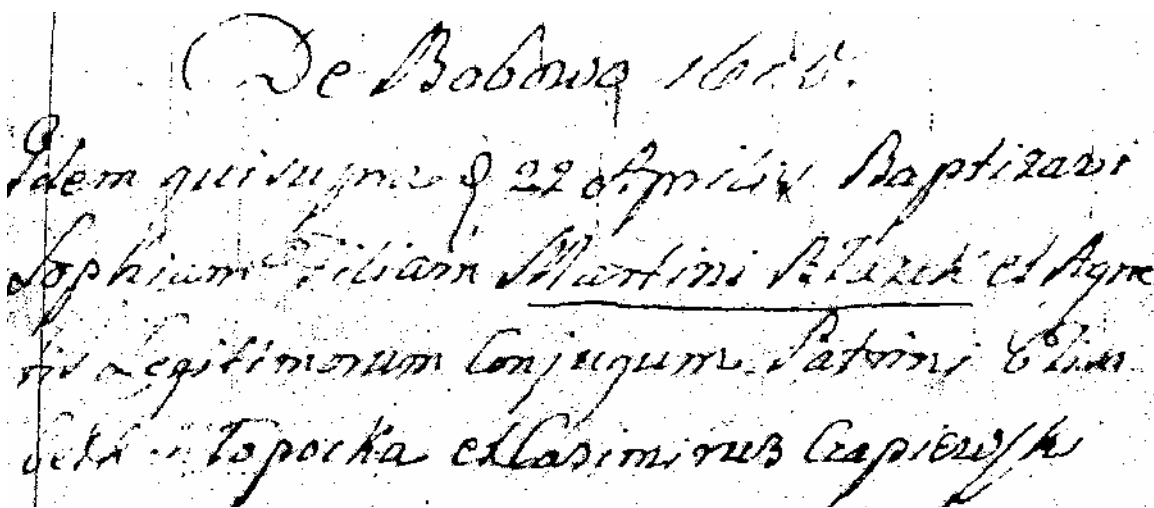 De Babowo
Idem qui supra 22 Aprilis Baptizavi
Sophiam Filiam Martini Blazek et Agne
tis Legitimorum Conjugum Patrini Elisa
beth Topocka et Casimirus Czapiewski